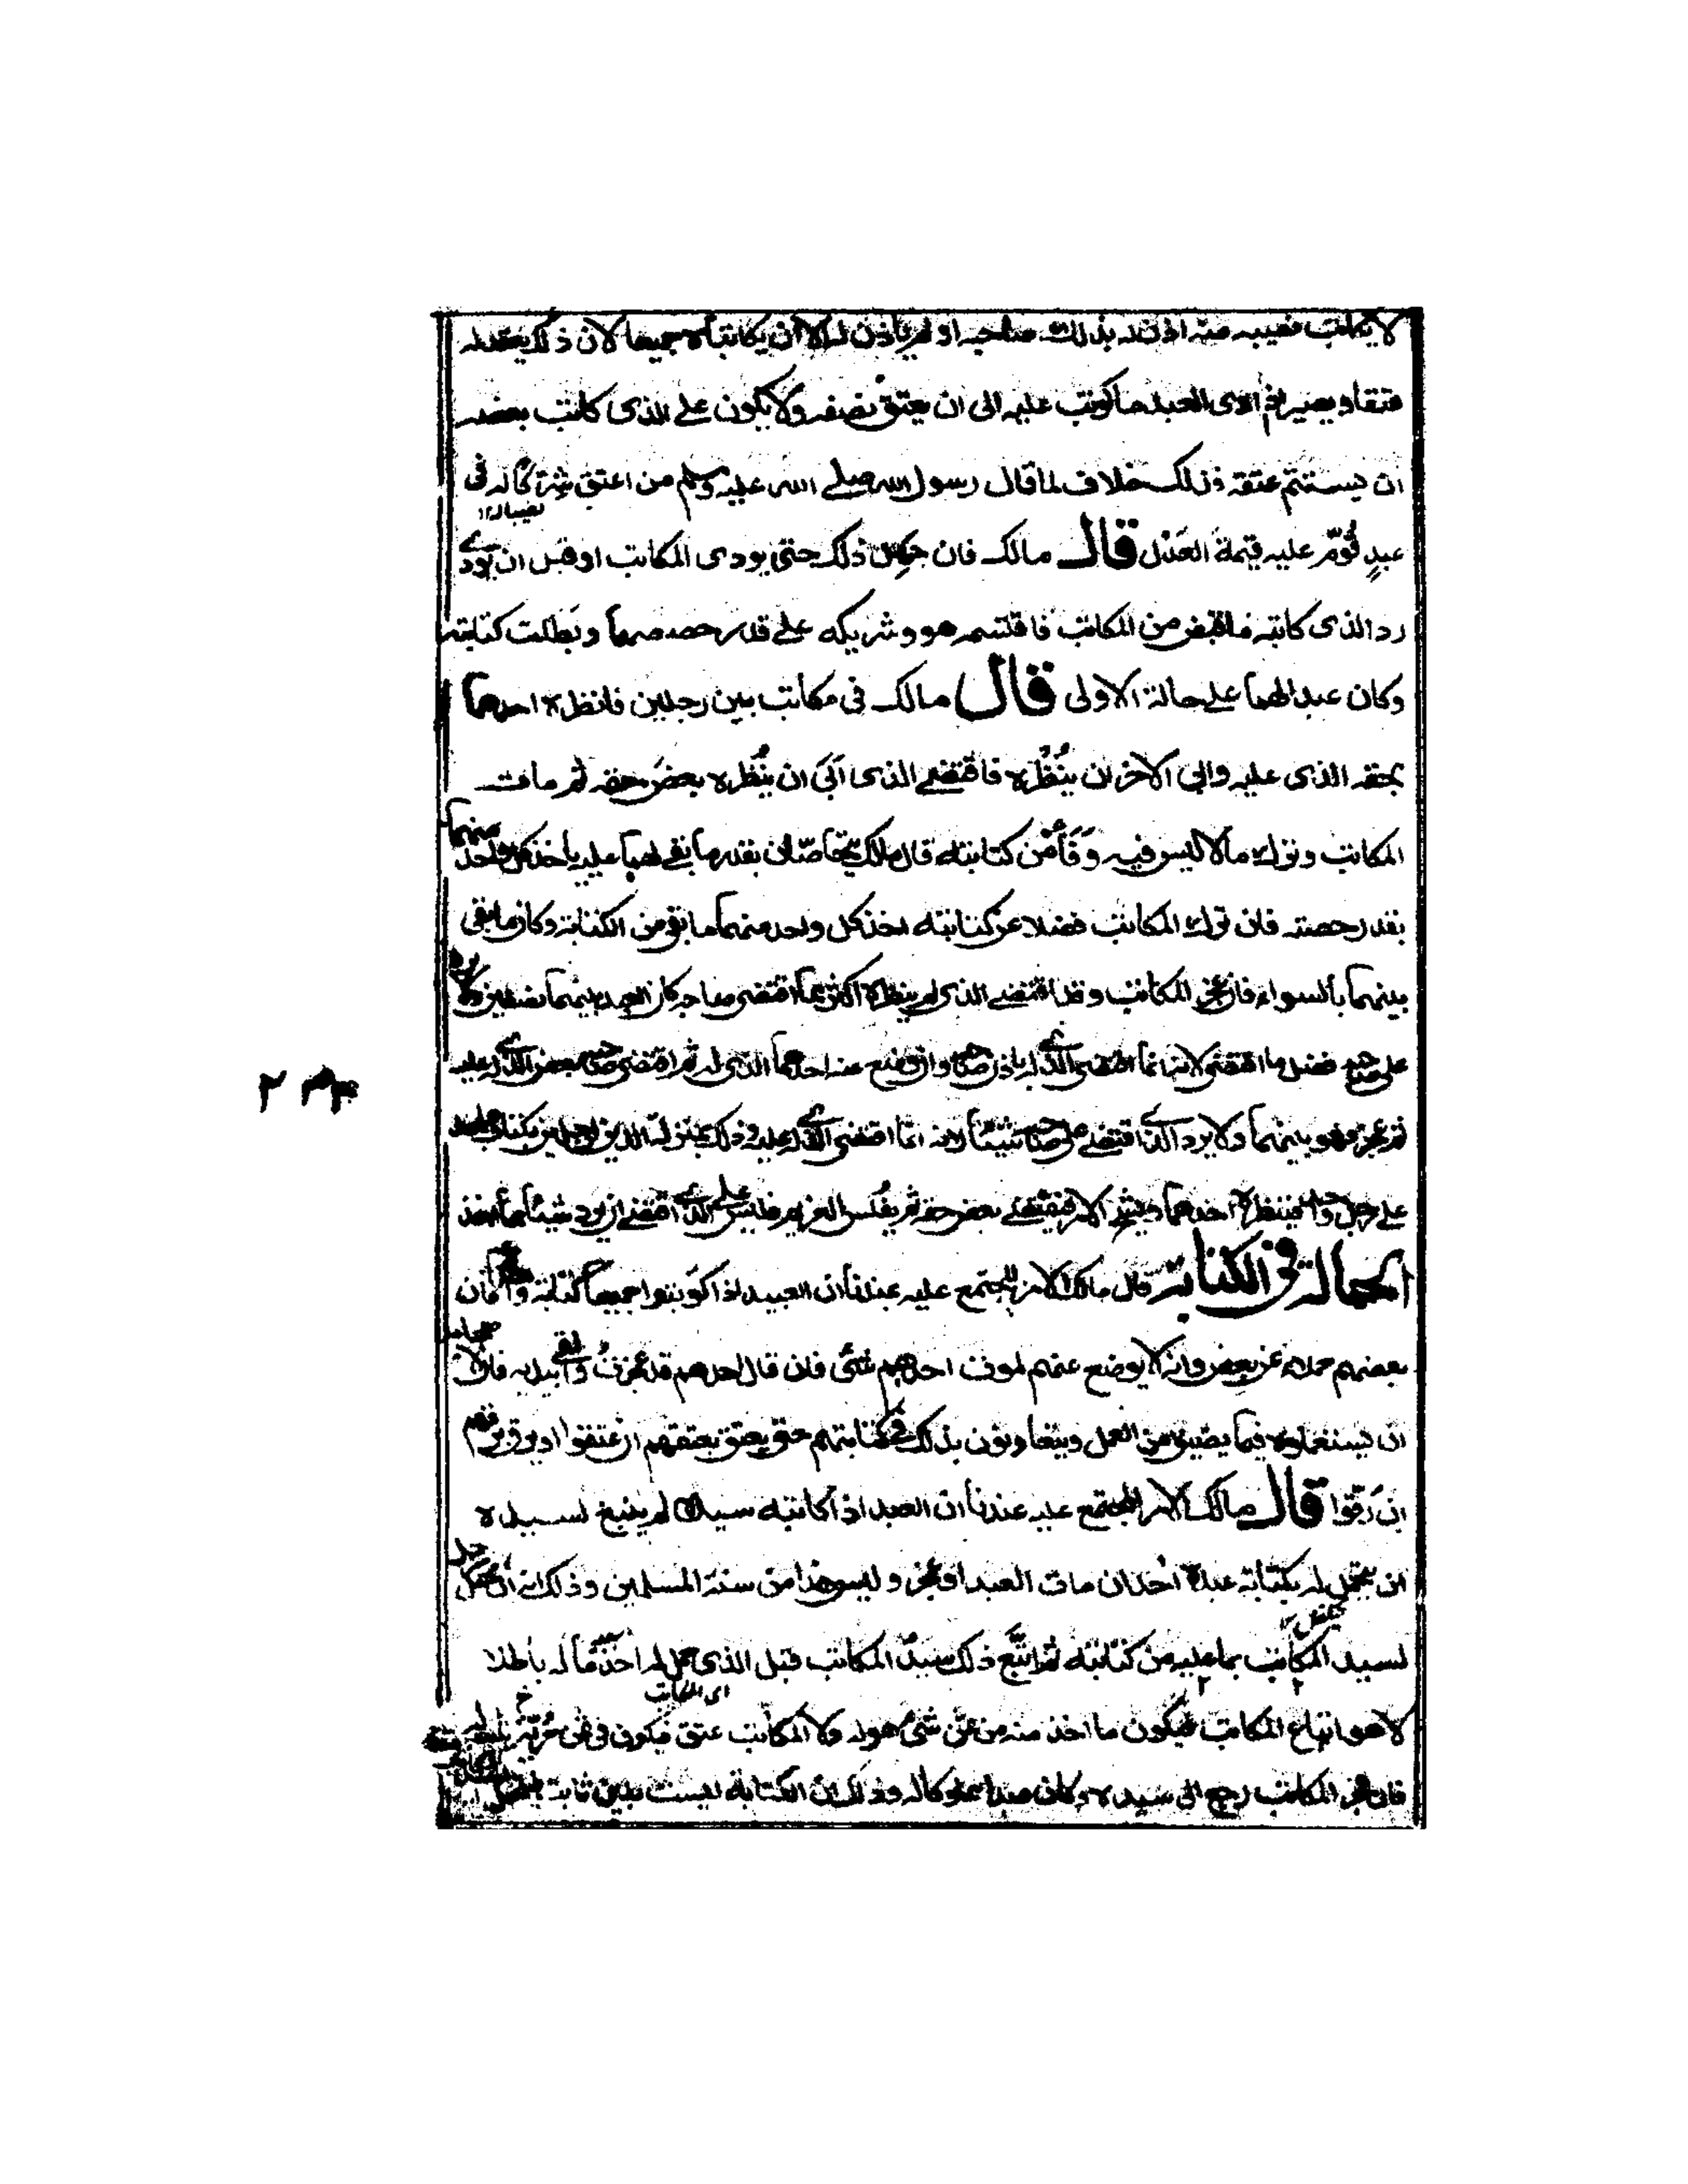 لا يكاتب نصيبه منه اذن له بذلك صاحبه او لم ياذن له الا ان يكاتباه جميعا لان ذلك يعقد له
عتقا و يصير اذا ادى العبد ما كوتب عليه الى ان يعتق نصفه ولا يكون على الذى كاتب بعضه
ان يستتم عتقه فذلك خلاف لما قال رسول الله صلے الله عليه وسلم من اعتق شركا له فى
نصيبا له ١٢
عبدٍ قُوّم عليه قيمة العَدْل قال مالك فان جَهِل ذلك حتى يودى المكاتب او قبل ان يودے
رد الذى كاتبه ما قبض من المكاتب فاقتسمه هو وشريكه علے قدر حصصهما وبَطَلَت كتابته
وكان عبدا لهما على حالة الاولى قال مالك فى مكاتب بين رجلين فانظره احدهما
بحقه الذى عليه وابى الاخر ان يُنْظُره فاقتضے الذى اَبَى ان يُنْظره بعضَ حقه ثم مات
المكاتب وترك مالا ليس فيه وَفَاء من كتابته قال مالك يتحاصّان بقدر ما بقے لهما عليه ياخذ كل واحد منهما
بقدر حصته فان ترك المكاتب فضلا عن كتابته اخذ كل واحد منهما ما بقى من الكتابة وكان ما بقى
بينهما بالسواء فان عجز المكاتب وقد اقتضے الذى لم ينظره اكثر مما اقتضى صاحبه كان العبد بينهما نصفين ولا يرد
على صاحبه فضل ما اقتضى لانه انما اقتضى الذى له باذن صاحبه وان وضع عنه احدهما الذى له ثم اقتضى صاحبه بعض الذى له عليه
ثم عجز فهو بينهما ولا يرد الذے اقتضے على صاحبه شيئا لانه انما اقتضى الذے له عليه وذلك بمنزلة الدين للرجلين بكتاب واحد
على رجل واحد فينظره احدهما ويشح الاخر فيقتضے بعض حقه ثم يفلس الغريم فليس على الذے اقتضے ان يرد شيئا مما اخذ
الحمالة فى الكتابة قال مالك الامر المجتمع عليه عندنا ان العبيد اذا كوتبوا جميعا كتابة واحدة فان
بعضهم حملاء عن بعض وانه لا يوضع عنهم لموت احدهم شئ فان قال احدهم قد عجزتُ والقى بيديه فان لاصحابه
ان يستعملوه فيما يطيق من العمل ويتعاونون بذلك فى كتابتهم حتى يعتق بعتقهم ان عتقوا او يرق برقهم
ان رَقّوا قال مالك الامر المجتمع عليه عندنا ان العبد اذا كاتبه سيده لم ينبغ لسيده
ان يتحمل له بكتابة عبده احد ان مات العبد او عجز و ليس هذا من سنة المسلمين وذلك انه ان تحمل رجل
يتكفل ١٢
لسيد المكاتب بما عليه من كتابته ثم اتبَّع ذلك سيدُ المكاتب قبل الذى تحمل له اخذ ماله باطلا
اى المكاتب
لا هو ابتاع المكاتب فيكون ما اخذ منه من ثمن شئ هو له ولا المكاتب عتق فيكون فى ثمن حُرمة
فان عجز المكاتب رجع الى سيده وكان عبدا مملوكا له وذلك ان الكتابة ليست بدين ثابت